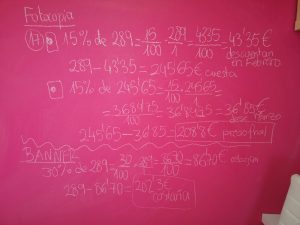 Fotocopia
17) • 15% de 289 = 15/100 · 289/1 = 4335/100 = 43'35€
descuentan en Febrero
289 - 43'35 = 245'65€ cuesta
• 15% de 245'65 = 15/100 · 245'65/1 =
= 3684'75/100 = 36'8475 ≈ 36'85€
desc Marzo
245'65 - 36'85 = 208'8€ precio final
BANNER
30% de 289 = 30/100 · 289 = 8670/100 = 86'70€
289 - 86'70 = 202'3€
costaría